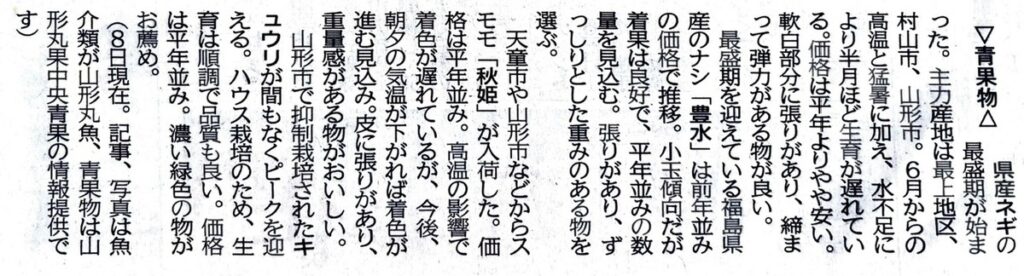 ▽青果物△　県産ネギの
最盛期が始ま
った。主力産地は最上地区、
村山市、山形市。６月からの
高温と猛暑に加え、水不足に
より半月ほど生育が遅れてい
る。価格は平年よりやや安い。
軟白部分に張りがあり、締ま
って弾力がある物が良い。
　最盛期を迎えている福島県
産のナシ「豊水」は前年並み
の価格で推移。小玉傾向だが
着果は良好で、平年並みの数
量を見込む。張りがあり、ず
っしりとした重みのある物を
選ぶ。
　天童市や山形市などからス
モモ「秋姫」が入荷した。価
格は平年並み。高温の影響で
着色が遅れているが、今後、
朝夕の気温が下がれば着色が
進む見込み。皮に張りがあり、
重量感がある物がおいしい。
　山形市で抑制栽培されたキ
ュウリが間もなくピークを迎
える。ハウス栽培のため、生
育は順調で品質も良い。価格
は平年並み。濃い緑色の物が
お薦め。
（８日現在。記事、写真は魚
介類が山形丸魚、青果物は山
形丸果中央青果の情報提供で
す）